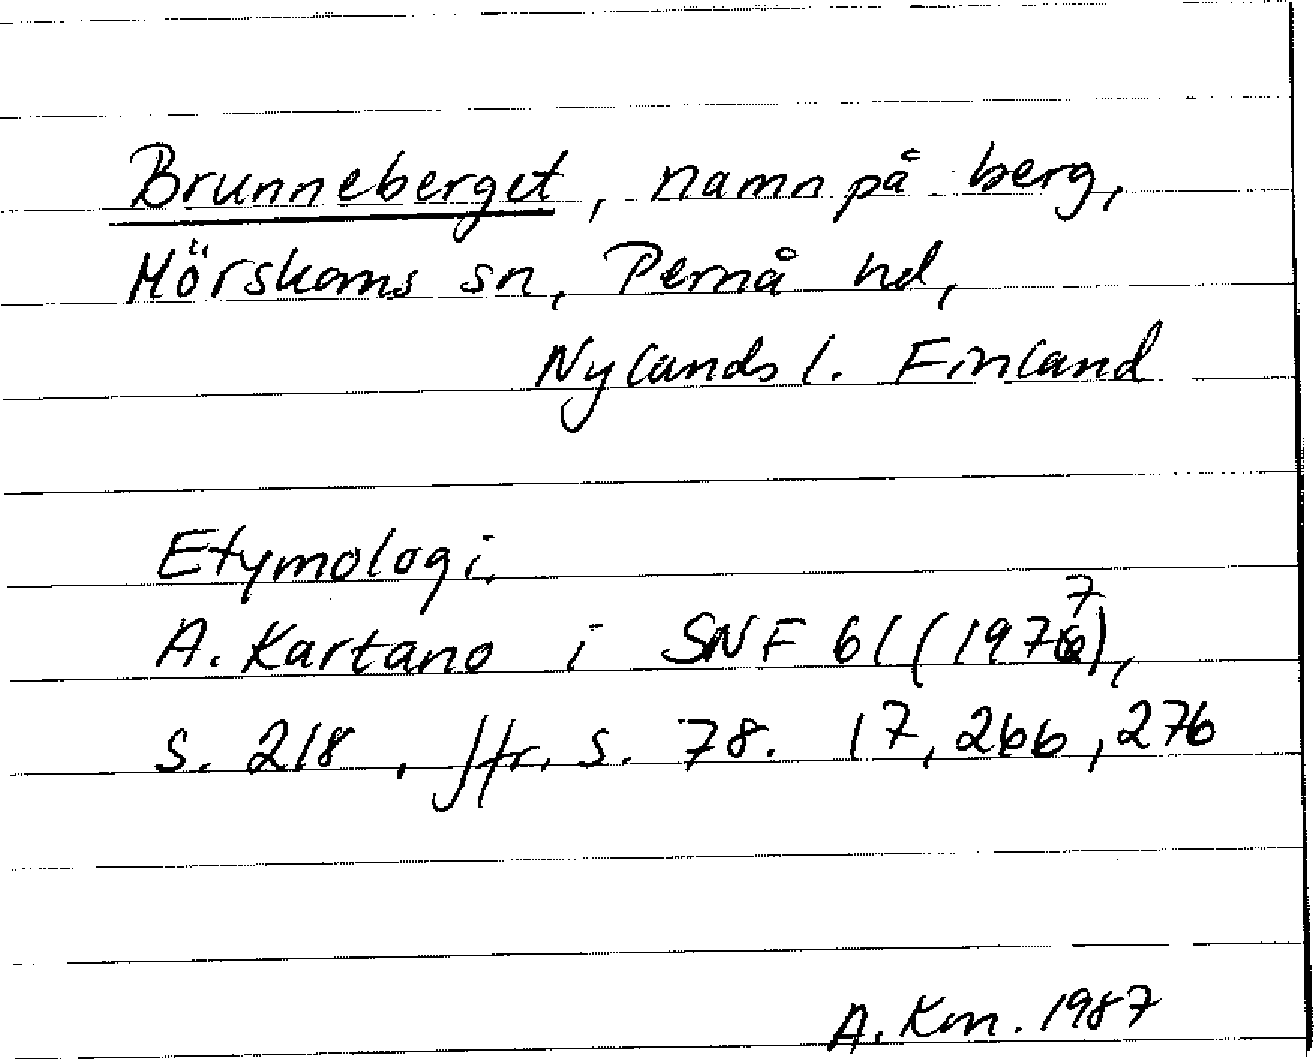 Brunneberget, namn på berg,
Mörskoms sn, Pernå hd,
Nylands l. Finland
Etymologi.
A. Kartano i SNF 61 (1977),
s. 218, Jfr. s. 78. 17, 266, 276
A. Km. 1987